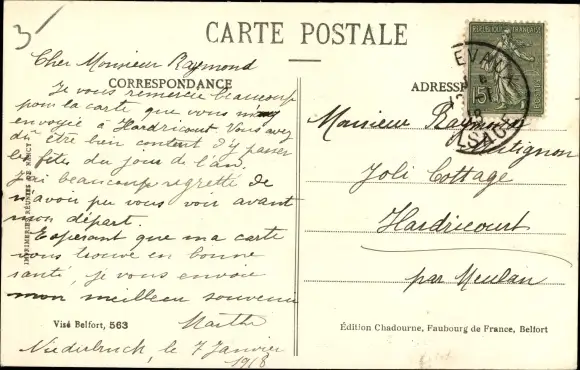 3
CARTE POSTALE
Cher Monsieur Raymond
CORRESPONDANCE
Je vous remercie beaucoup
pour la carte que vous m'avez
envoyée à Hardricourt. Vous avez
dû être bien content d'y passer
les fêtes du jour de l'an.
J'ai beaucoup regretté de
n'avoir pu vous voir avant
mon départ.
Espérant que ma carte
vous trouve en bonne
santé, je vous envoie
mon meilleur souvenir
Marthe
Niederbruck, le 7 Janvier
1918
Visé Belfort, 563
IMPRIMERIES RÉUNIES DE NANCY
ADRESSE
REPUBLIQUE FRANÇAISE
15
POSTES
ALSACE
Monsieur Raymond
Joli Cottage
Hardricourt
par Meulan
Édition Chadourne, Faubourg de France, Belfort